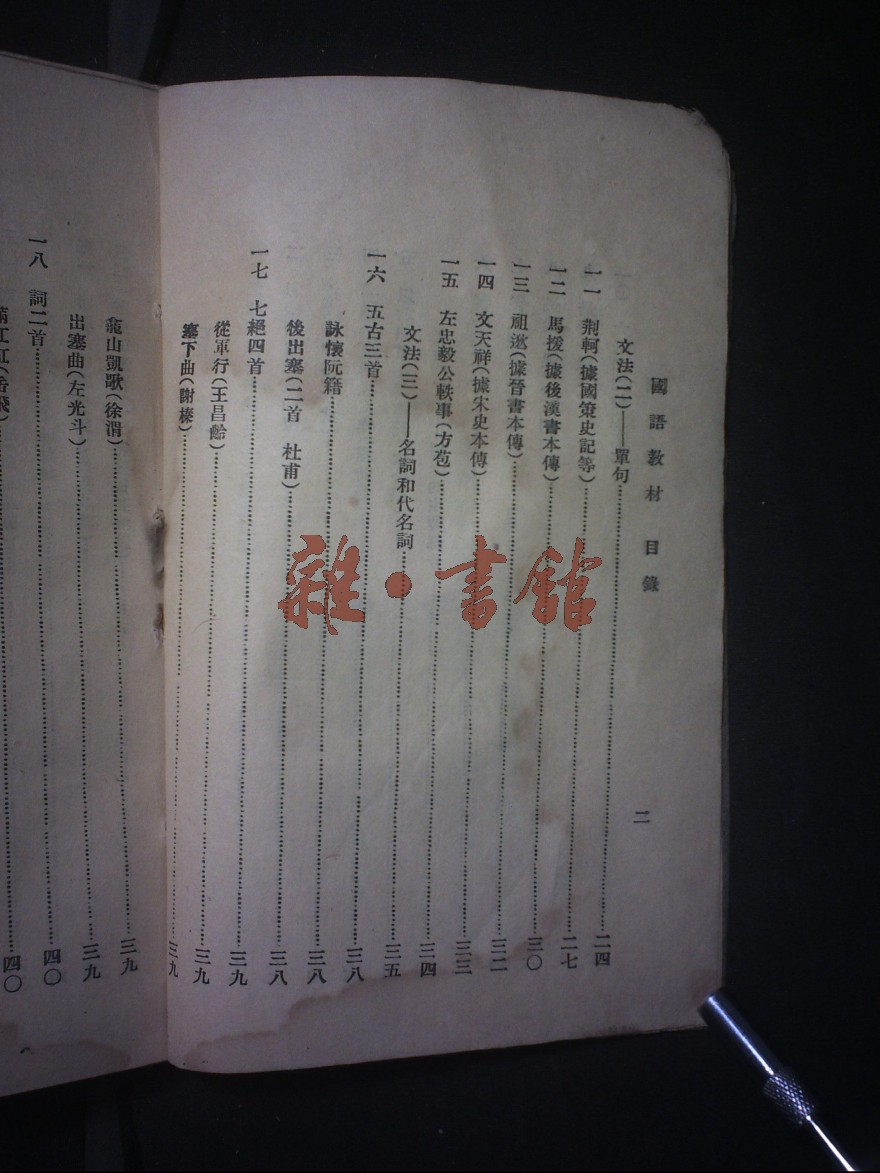 國語教材 目錄 二
文法(二)——單句……二四
一一 荆軻(據國策史記等)……二七
一二 馬援(據後漢書本傳)……三〇
一三 祖逖(據晉書本傳)……三二
一四 文天祥(據宋史本傳)……三三
一五 左忠毅公軼事(方苞)……三四
文法(三)——名詞和代名詞……三五
一六 五古三首……三八
詠懷阮籍……三八
後出塞(二首 杜甫)……三八
一七 七絕四首……三九
從軍行(王昌齡)……三九
塞下曲(謝榛)……三九
龕山凱歌(徐渭)……三九
出塞曲(左光斗)……三九
一八 詞二首……四〇
滿江紅(岳飛)……四〇
雜·書館